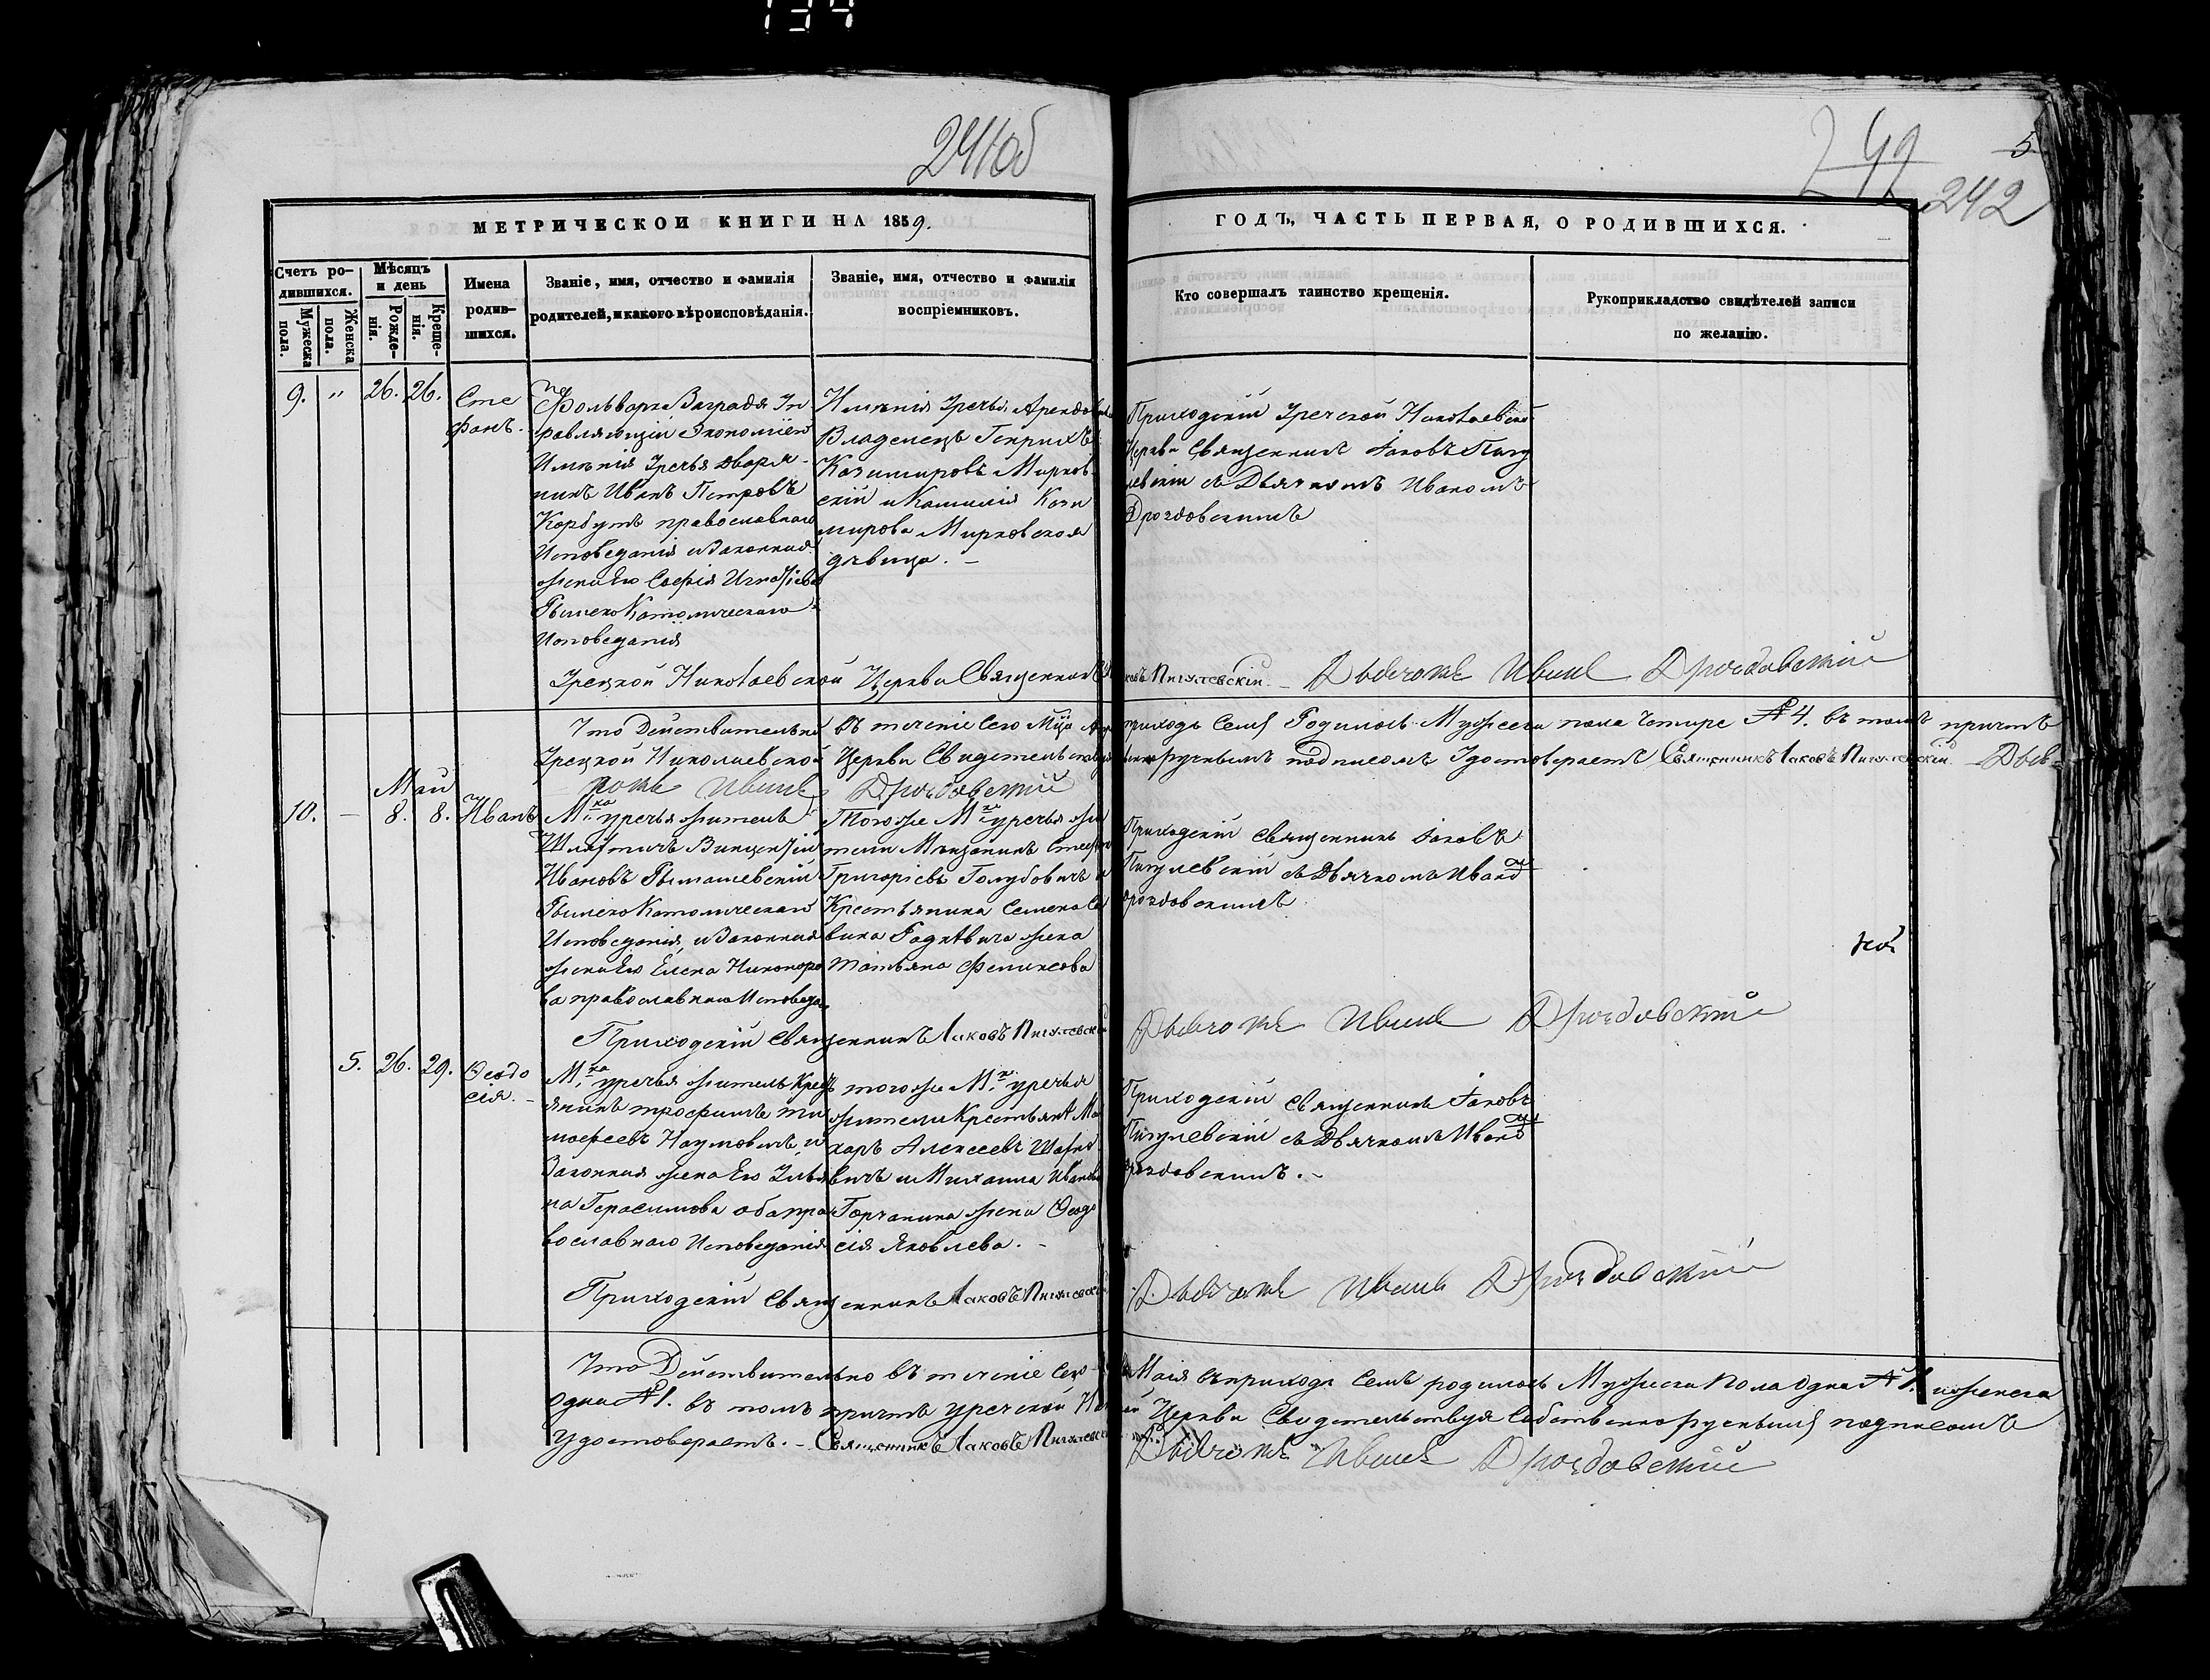 134
241об
242
5
242
МЕТРИЧЕСКОЙ КНИГИ НА 1859.
ГОДЪ, ЧАСТЬ ПЕРВАЯ, О РОДИВШИХСЯ.
Счетъ ро-
дившихся.
Мужеска
пола.
Женска
пола.
Мѣсяцъ
и день
Рожде-
нія.
Креще-
нія.
Имена
родив-
шихся.
Званіе, имя, отчество и фамилія
родителей, и какого вѣроисповѣданія.
Званіе, имя, отчество и фамилія
воспріемниковъ.
Кто совершалъ таинство крещенія.
Рукоприкладство свидѣтелей записи
по желанію.
9. " 26. 26.
Сте
фанъ.
Фольварка Уп
равляющій Экономіею
Имѣнія Уречья Дворя-
нинъ Иванъ Петровъ
Корбутъ православнаго
Исповеданія и Законная
жена Его Софія
Римско Католическаго
Исповеданія
Имѣнія Уречья
Владелецъ Генрихъ
Казимировъ Мирков
скій и Камилія Кази
мирова Мирковская
дѣвица. -
Приходскій Уречской Николаевской
Церкви Священникъ Іаковъ Пигу
левскій съ Дьячкомъ Иваномъ
Дроздовскимъ
Урецкой Николаевской Церкви Священникъ Іаковъ Пигулевскій. - Дьячокъ Иванъ Дроздовскій
Что Действительно въ теченіе Сего Мца приходѣ Семъ Родилось Мужеска пола четыре № 4. въ томъ причтъ
Урецкой Николаевской Церкви Свидетельствуя подписомъ Удостоверяетъ Священникъ Іаковъ Пигулевскій. Дья-
чокъ Иванъ Дроздовскій
Май
10. - 8. 8. Иванъ
М:ка уречья житель
Шляхтичъ Викентій
Ивановъ Римашевскій
Римско Католическаго
Исповеданія, и Законная
жена Его Елена Никаноро
ва православнаго Исповеда
Того же М:ка уречья жи
тели Мещанинъ
Григоріевъ Голубовичъ и
Крестьянина Семена
жена
Татьяна Феликсова
Приходскій Священникъ Іаковъ
Пигулевскій съ Дьячкомъ Иваномъ
Дроздовскимъ
Приходскій Священникъ Іаковъ Пигулевскій Дьячокъ Иванъ Дроздовскій
5. 26. 29.
Ѳеодо
сія. -
М:ка уречья житель Крест
янинъ трофимъ ти
мофеевъ Наумовичъ, и
Законная жена Его Улья
на Герасимова оба пра
вославнаго Исповеданія
того же М:ка уречья
жители Крестьянѣ Ма
каръ Алексеевъ
вичъ и Михаила Иванова
Горчанина жена Ѳеодо
сія Яковлева. -
Приходскій Священникъ Іаковъ
Пигулевскій съ Дьячкомъ Иваномъ
Дроздовскимъ. -
Приходскій Священникъ Іаковъ Пигулевскій Дьячокъ Иванъ Дроздовскій
Что Действительно въ теченіе Сего Маія въ приходѣ Семъ родилось Мужеска Пола Одна № 1. и женска
Одна № 1. въ томъ причтъ уречской Церкви Свидетельствуя Собственноручнымъ подписомъ
Удостоверяетъ. - Священникъ Іаковъ Пигулевскій Дьячокъ Иванъ Дроздовскій